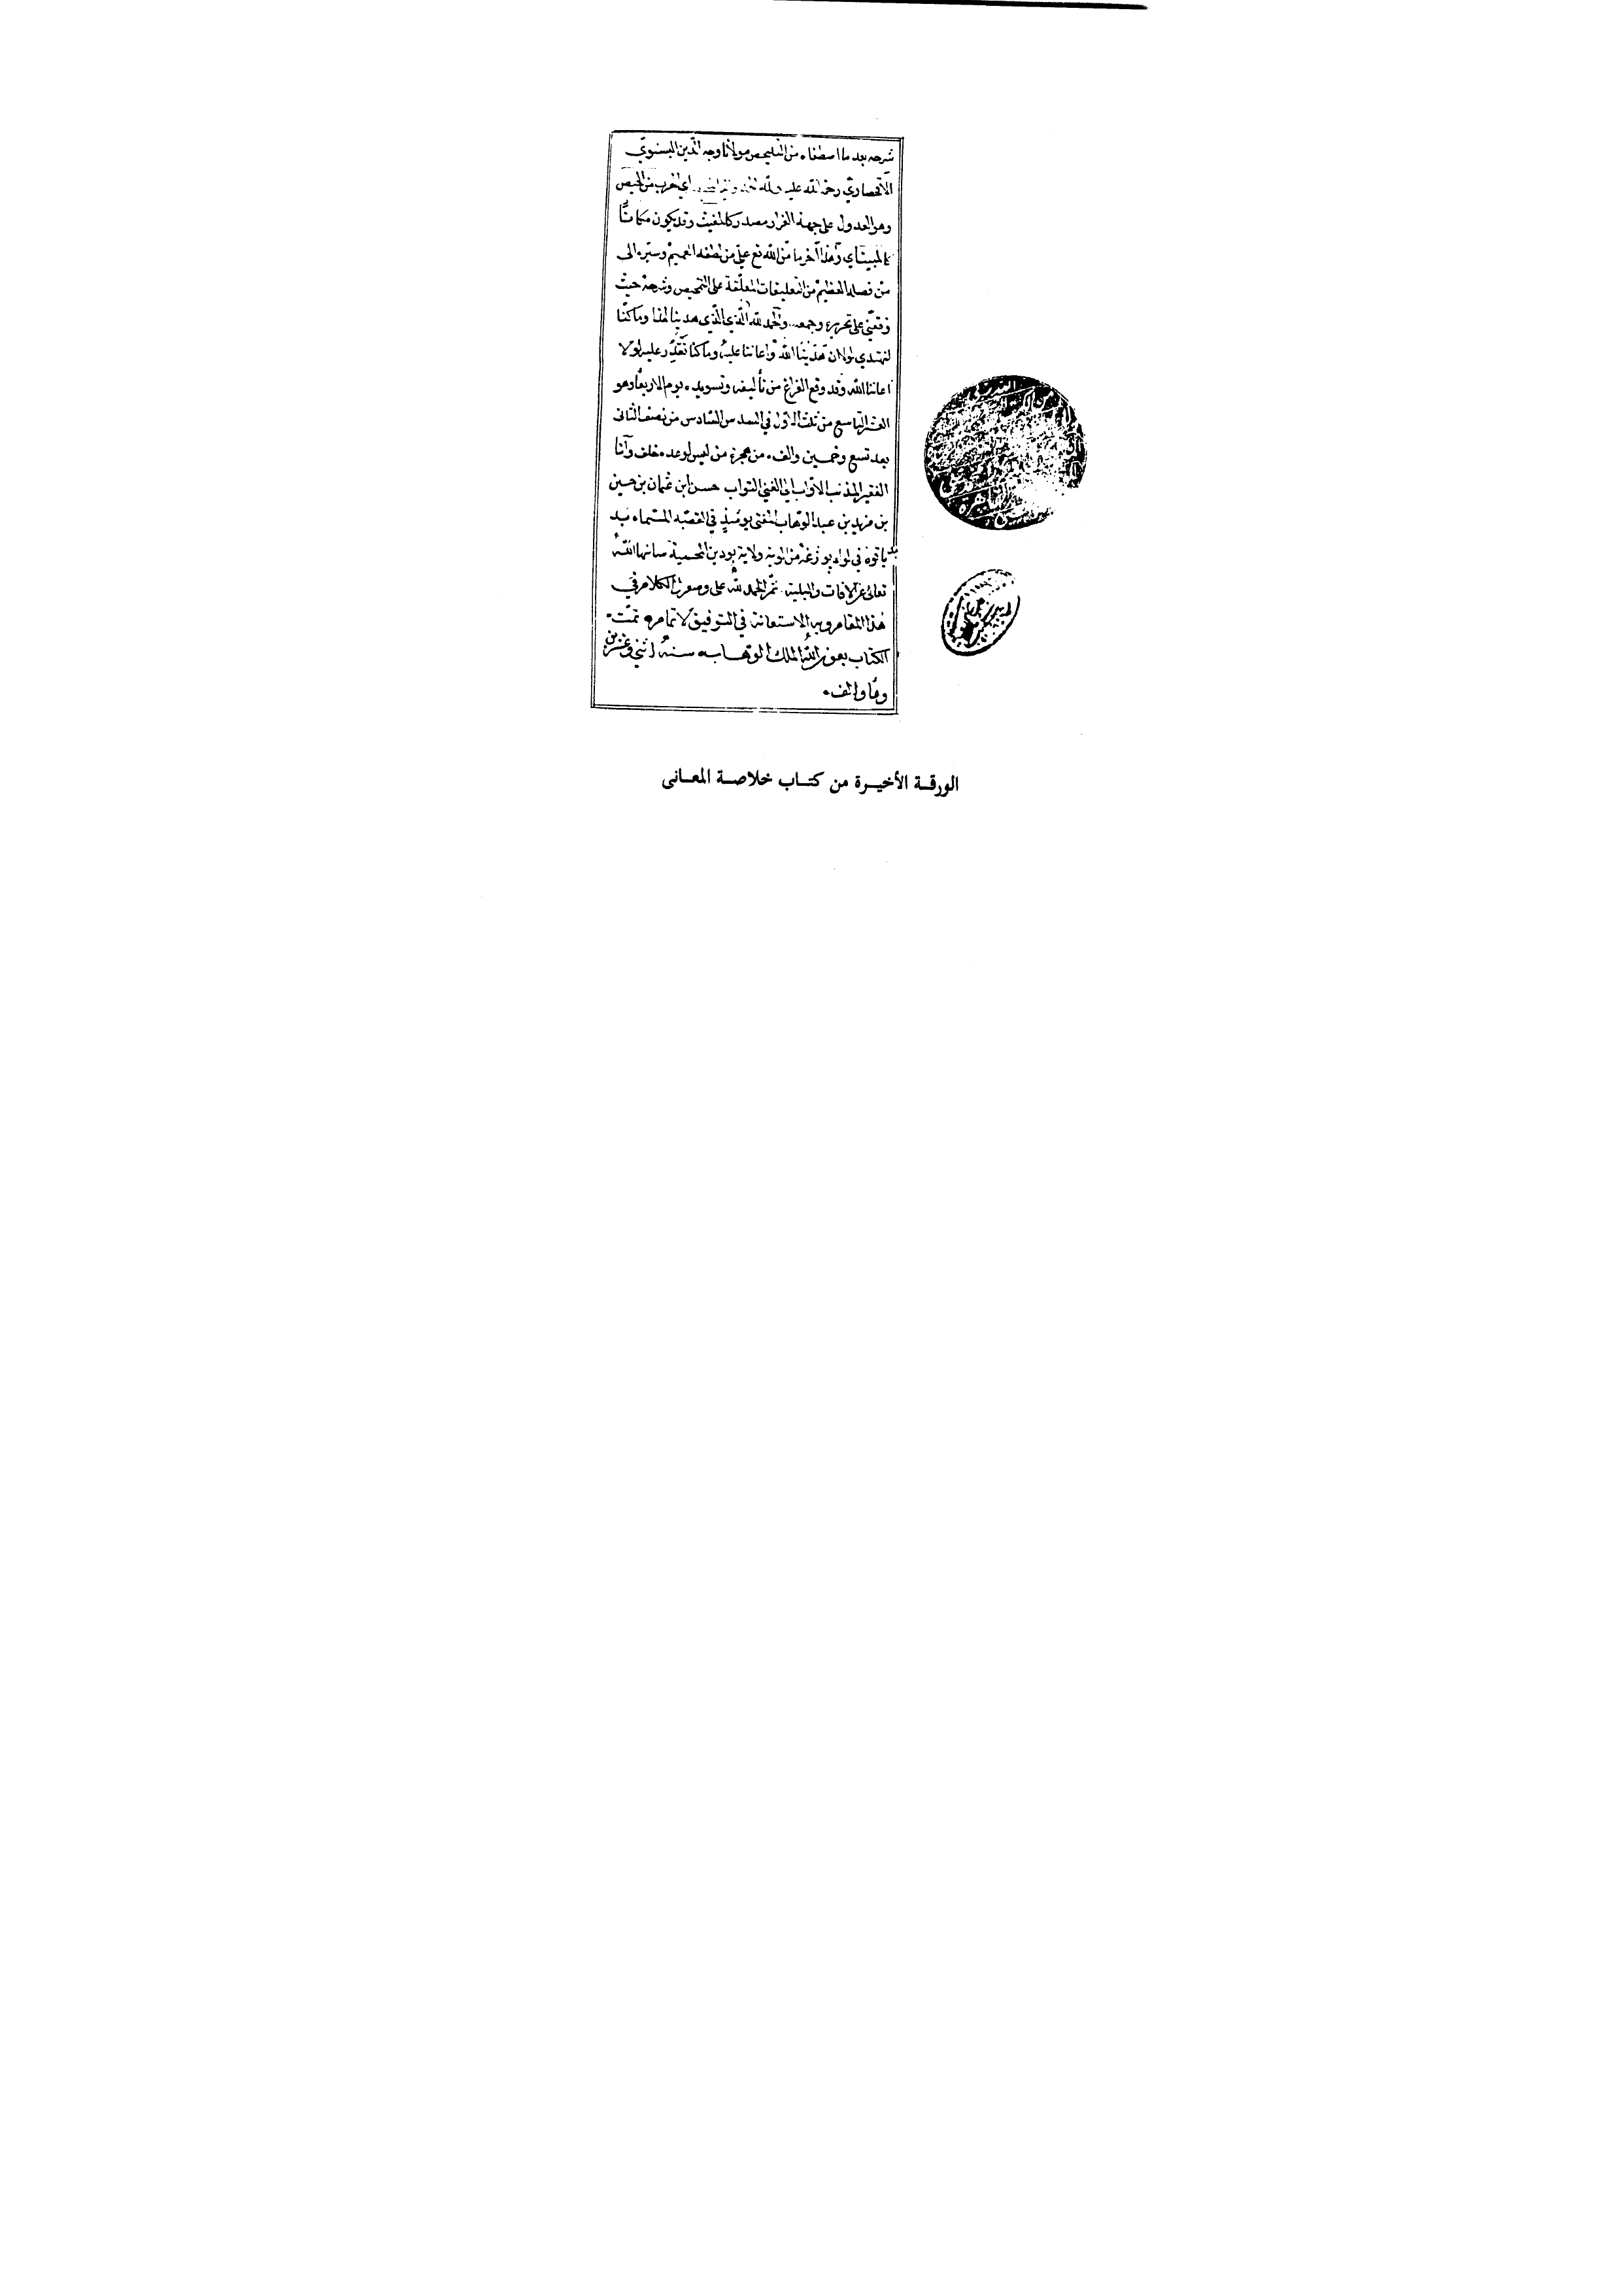 شرحه بعد ما اصطفاه من التلخيص مولانا وجه الدين البسنوي
الأقحصاري رحمة الله عليه ولله
وهو العدول على جهة الفرار مصدر كالمغيث وقد يكون مكانًا
كالمبيت وهذا آخر ما منّ الله تع عليّ من لطفه العميم ويسّره الى
من فضله العظيم من التعليقات المعلّقة على التلخيص وشرحه حيث
وفقني على تحريره وجمعه والحمد لله الذي الذي هدينا لهذا وما كنّا
لنهتدي لولا ان هدينا الله واعاننا عليه وما كنا نقدر عليه لولا
اعاننا الله وقد وقع الفراغ من تأليفه وتسويده يوم الاربعا وهو
العشر التاسع من ثلث الاول في السدس السادس من نصف الثاني
بعد تسع وخمسين والف من هجرة من ليس لوعده خلف وأنا
الفقير المذنب الاوّاب الى الغني التواب حسن ابن عثمان بن حسين
بن مزيد بن عبد الوهاب المفتي يومئذٍ في القصبة المسمّاه
في لواء من الوية ولاية بودين المحمية صانها الله
تعالى عن الافات والبلية ثمّ الحمد لله على وصول الكلام في
هذا المقام وبه الاستعانة في التوفيق لاتمامه تمّت
الكتاب بعون الله الملك الوهاب سنة اثني وعشرين
وما والف
الورقة الأخيرة من كتاب خلاصة المعانى